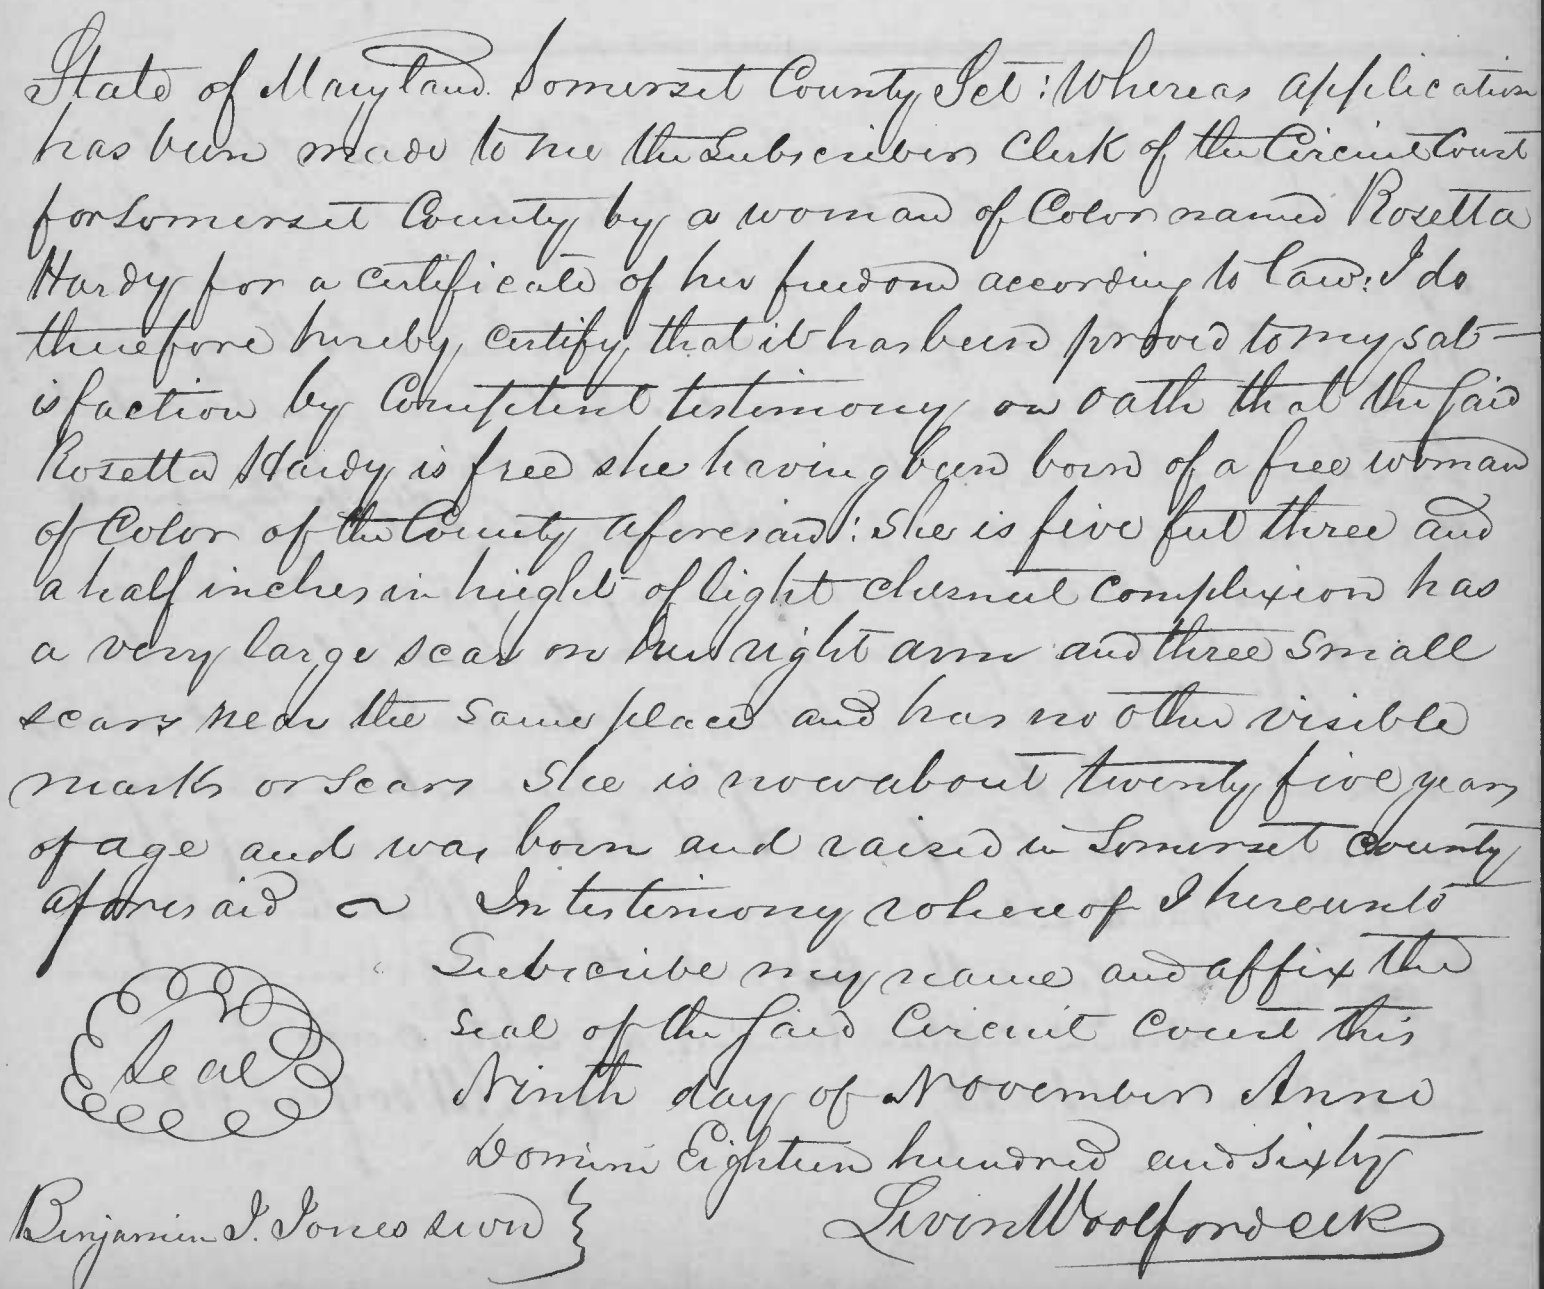 State of Maryland Somerset County Sct: Whereas application
has been made to me the Subscriber Clerk of the Circuit Court
for Somerset County by a woman of Color named Rosetta
Hardy for a certificate of her freedom according to law: I do
therefore hereby certify that it has been proved to my sat-
isfaction by Competent testimony on oath that the said
Rosetta Hardy is free she having been born of a free woman
of Color of the County aforesaid: She is five feet three and
a half inches in hieght of light chesnut complexion has
a very large scar on her right arm and three small
scars near the same place and has no other visible
marks or scars She is now about twenty five years
of age and was born and raised in Somerset County
aforesaid ~ In testimony whereof I hereunto
Subscribe my name and affix the
seal of the said Circuit Court this
Seal
Ninth day of November Anno
Domini Eighteen hundred and sixty
Benjamin I. Jones swn }
Levin Woolford Clk